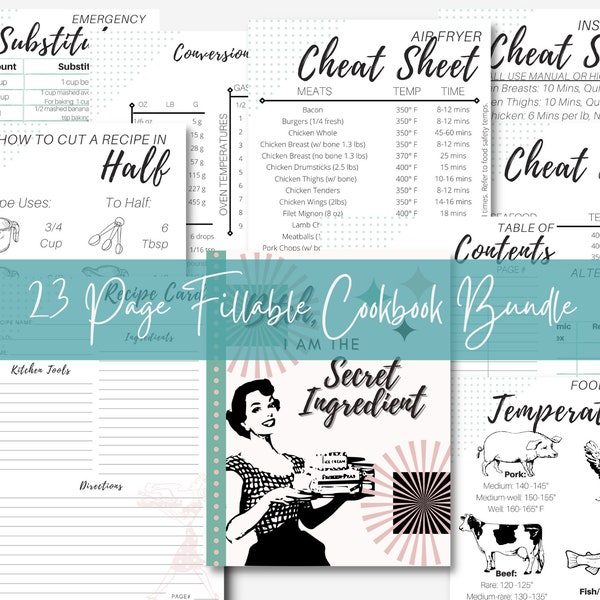 EMERGENCY
Substitu
ount Substit
cup 1 cup be
cup 1 cup mashed av
For baking: 1 cu
1/2 mashed banana
tsp baking
Conversion
OZ LB G
1/6 oz 5 g
15 g
455 g
115 g
227 g
455 g
6 drops
1/16 tsp
GAS
OVEN TEMPERATURES
AIR FRYER
Cheat Sheet
MEATS TEMP TIME
Bacon 350° F 8-12 mins
Burgers (1/4 fresh) 350° F 8-12 mins
Chicken Whole 350° F 45-60 mins
Chicken Breast (w/ bone 1.3 lbs) 350° F 8-12 mins
Chicken Breast (no bone 1.3 lbs) 370° F 25 mins
Chicken Drumsticks (2.5 lbs) 400° F 15 mins
Chicken Thighs (w/ bone) 400° F 10-16 mins
Chicken Tenders 350° F 8-12 mins
Chicken Wings (2lbs) 350° F 14-16 mins
Filet Mignon (8 oz) 400° F 18 mins
Lamb C
Meatballs (1
Pork Chops (w/ b
times. Refer to food safety temps.
INS
Cheat S
ALL USE MANUAL OR HIG
en Breasts: 10 Mins, Qui
en Thighs: 10 Mins, Qu
Chicken: 6 Mins per lb, N
Cheat
HOW TO CUT A RECIPE IN
Half
pe Uses: To Half:
3/4 Cup
6 Tbsp
TABLE OF
Contents
PAGE #
ALTE
23 Page Fillable Cookbook Bundle
Recipe Card
RECIPE NAME
Ingredients
Kitchen Tools
Directions
PAGE#
I AM THE
Secret
Ingredient
ICE CREAM
FROZEN PEAS
FOO
Temperat
Pork:
Medium: 140-145°
Medium-well: 150-155°
Well: 160-165° F
Beef:
Rare: 120 -125°
Medium-rare: 130 -135°
Fish/